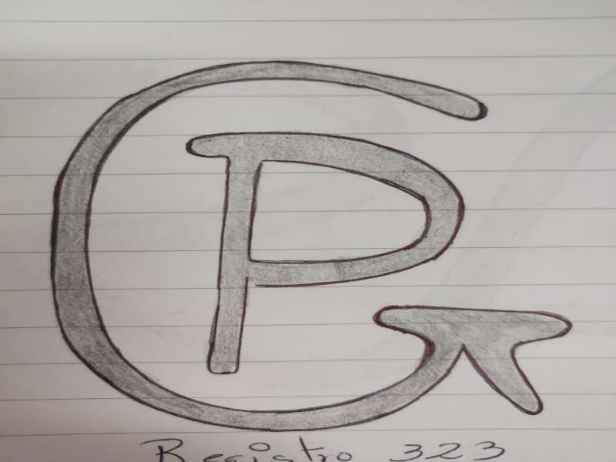 GP
Registro 323